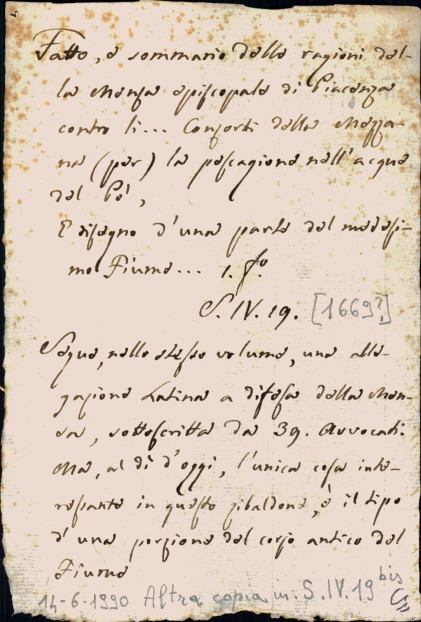 Fatto, e sommario delle ragioni del-
la Mensa episcopale di Piacenza
contro li... Consorti della Mezza-
na (per) la pescagione nell'acque
del Pò,
E disegno d'una parte del medesi-
mo Fiume... 1. fo.
S. IV. 19. [1669?]
Segue, nello stesso volume, una alle-
gazione Latina a difesa della Men-
sa, sottoscritta da 39. Avvocati.
Ma, al dì d'oggi, l'unica cosa inte-
ressante in questo zibaldone, è il tipo
d'una porzione del corso antico del
Fiume
14-6-1990 Altra copia in: S. IV. 19 bis